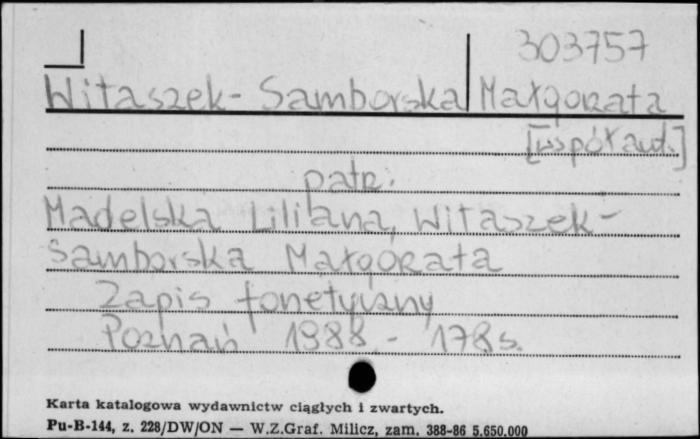 303757
Witaszek-Samborska Małgorzata
[współaut.]
patrz:
Madelska Liliana, Witaszek-
Samborska Małgorzata
Zapis fonetyczny
Poznań 1988 - 178 s.
Karta katalogowa wydawnictw ciągłych i zwartych.
Pu-B-144, z. 228/DW/ON — W.Z.Graf. Milicz, zam. 388-86 5.650.000